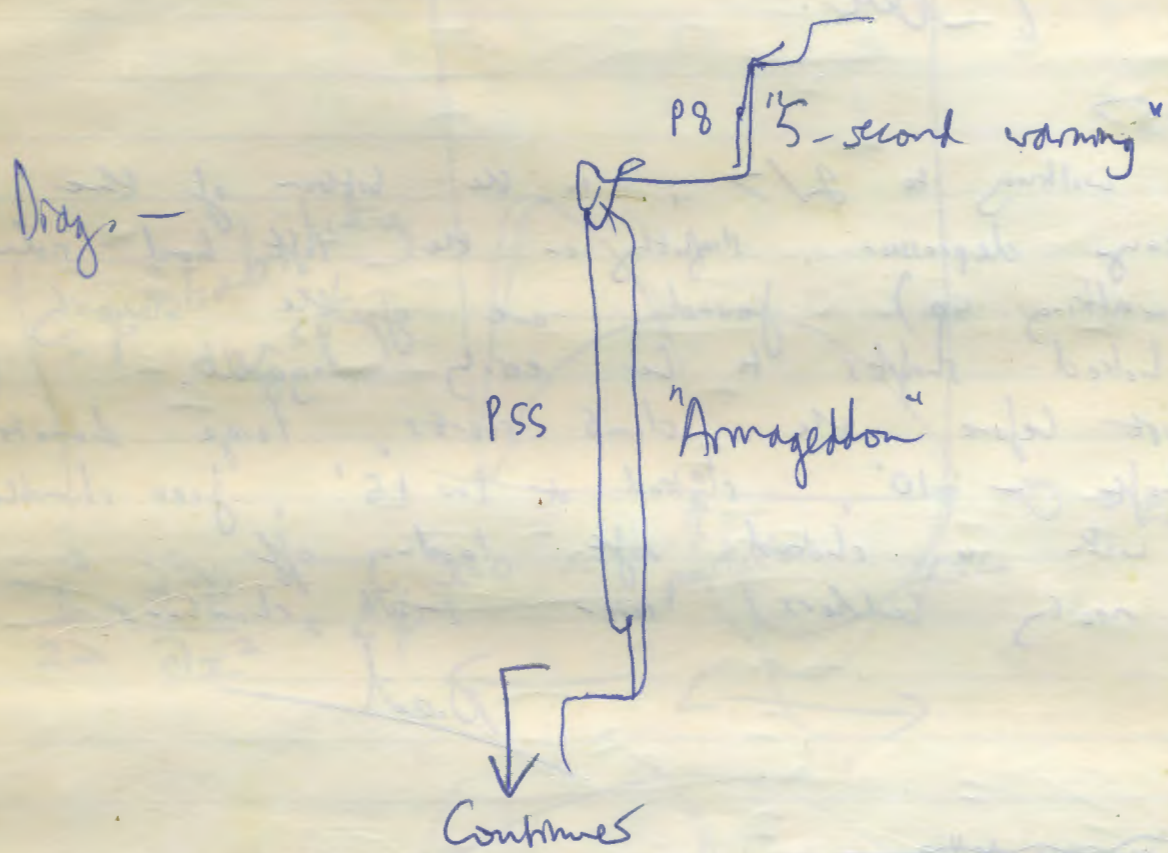 P8 "5-second warning"
Diag. —
P55 "Armageddon"
Continues